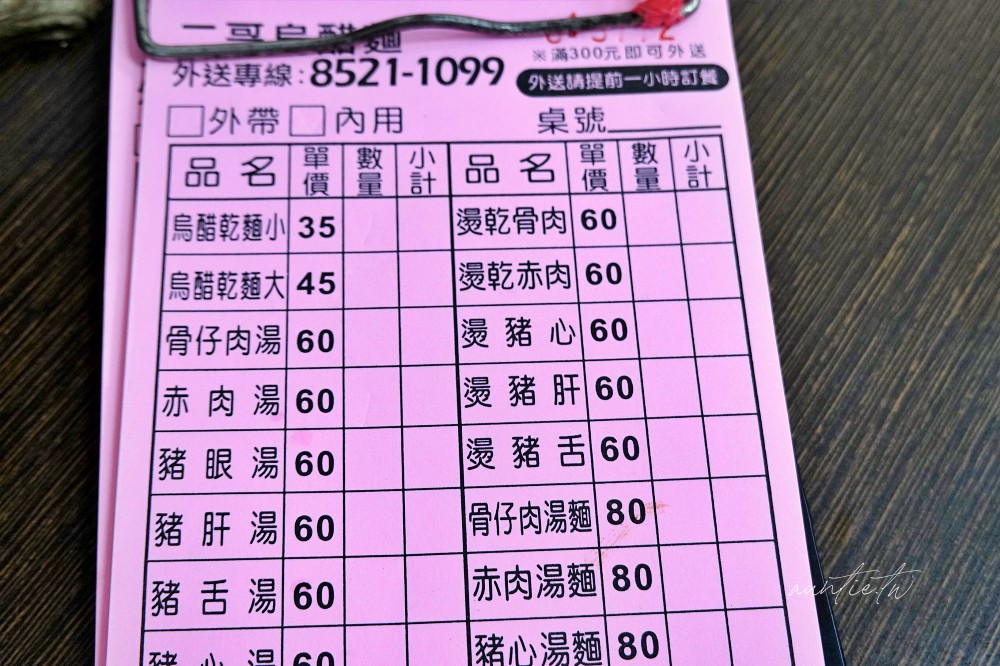 二哥烏醋麵
※滿300元即可外送
外送專線:8521-1099
外送請提前一小時訂餐
□外帶 □內用 桌號
品名 單價 數量 小計 品名 單價 數量 小計
烏醋乾麵小 35 燙乾骨肉 60
烏醋乾麵大 45 燙乾赤肉 60
骨仔肉湯 60 燙豬心 60
赤肉湯 60 燙豬肝 60
豬眼湯 60 燙豬舌 60
豬肝湯 60 骨仔肉湯麵 80
豬舌湯 60 赤肉湯麵 80
豬心湯 60 豬心湯麵 80
auntie.tw